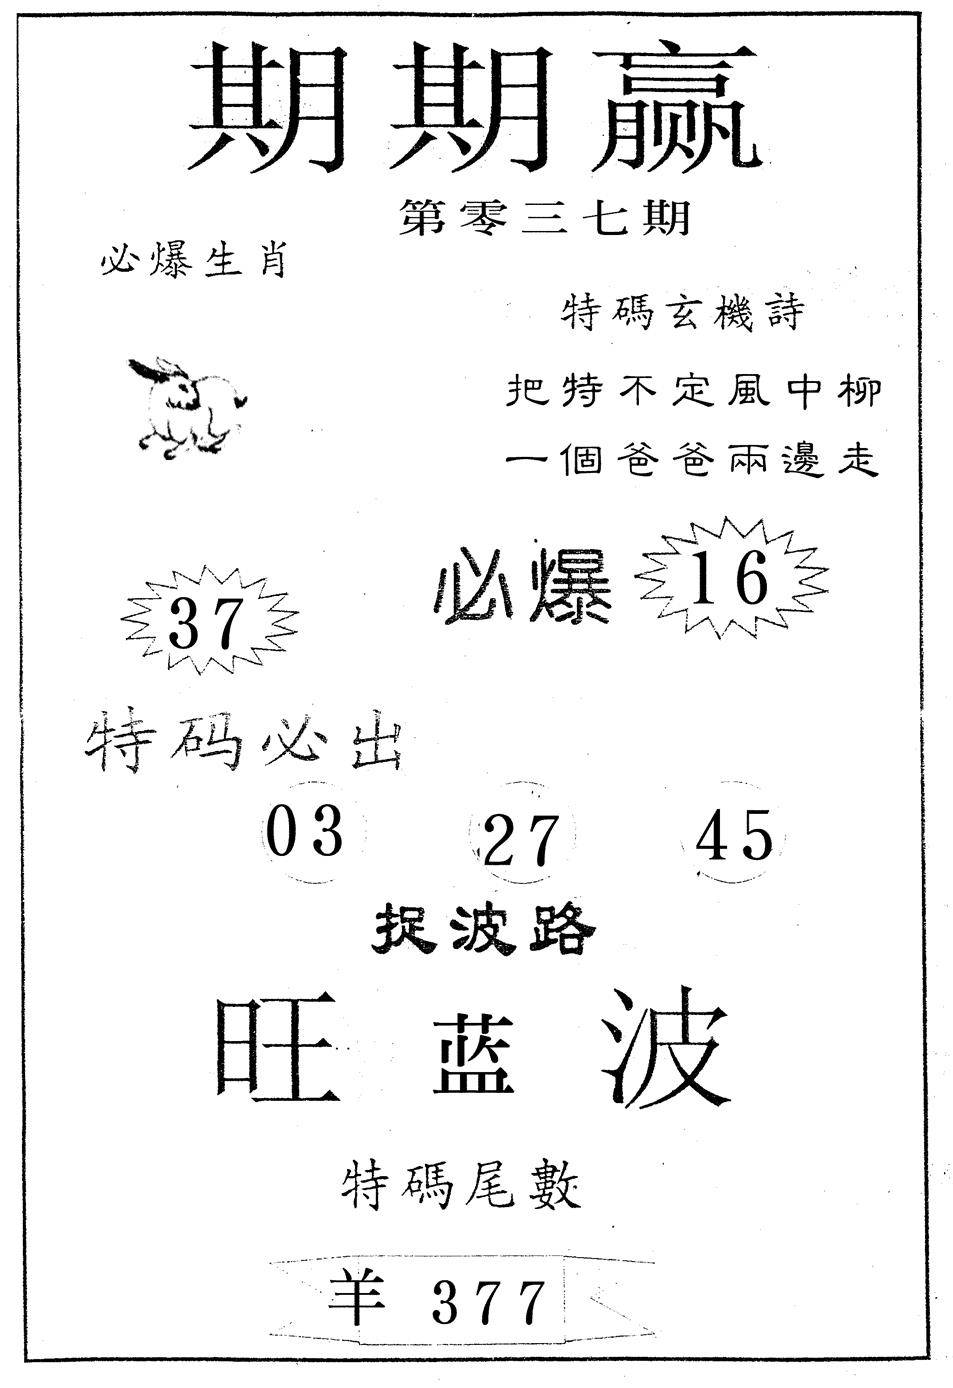 期期赢
第零三七期
必爆生肖
特碼玄機詩
把特不定風中柳
一個爸爸兩邊走
必爆 16
37
特码必出
03 27 45
捉波路
旺蓝波
特碼尾數
羊 377